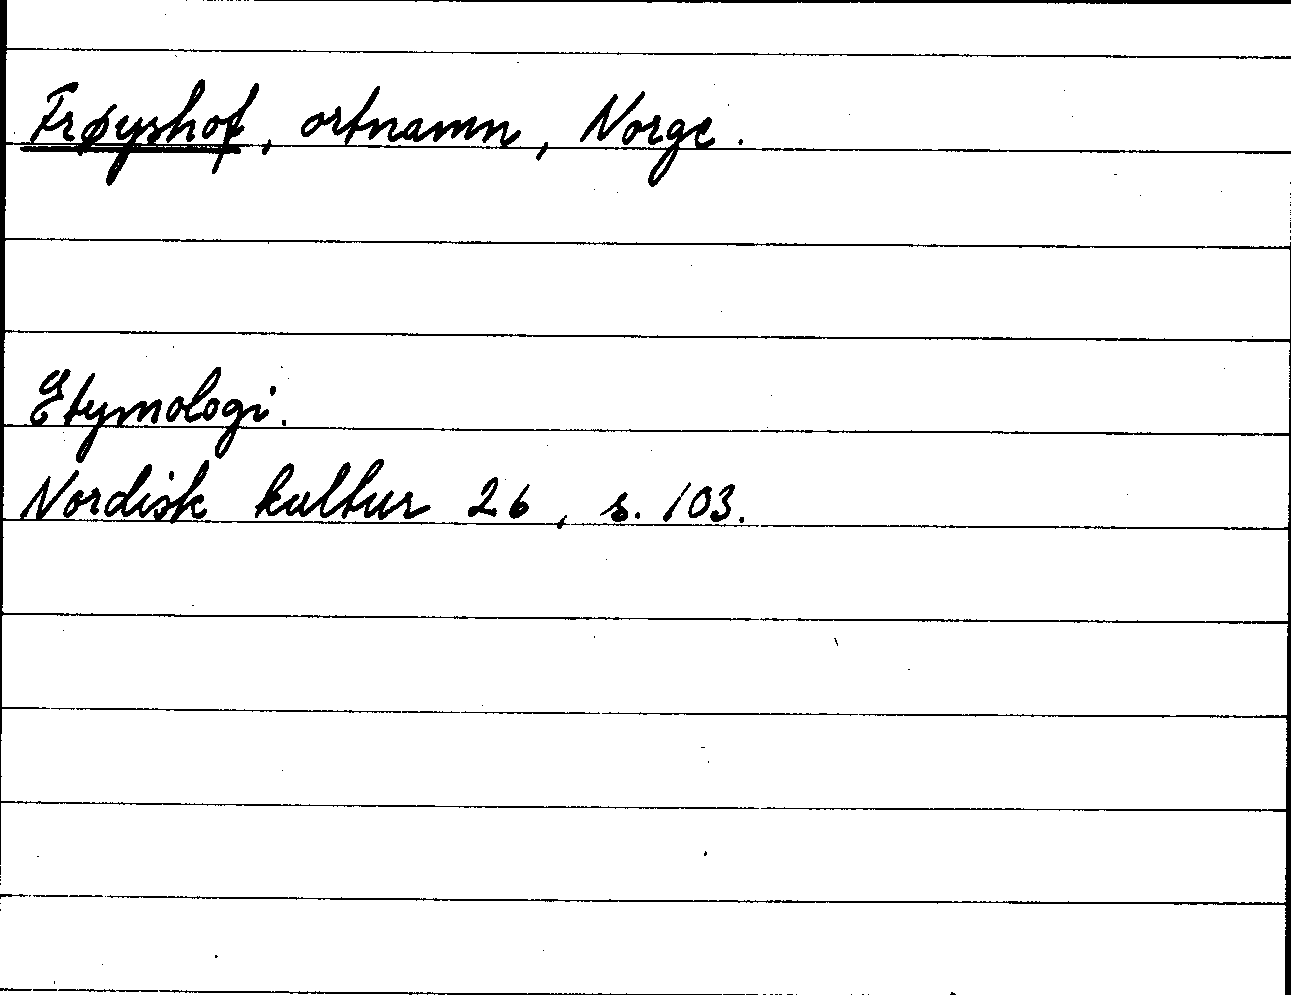 Frøyshof, ortnamn, Norge.
Etymologi.
Nordisk kultur 26, s. 103.